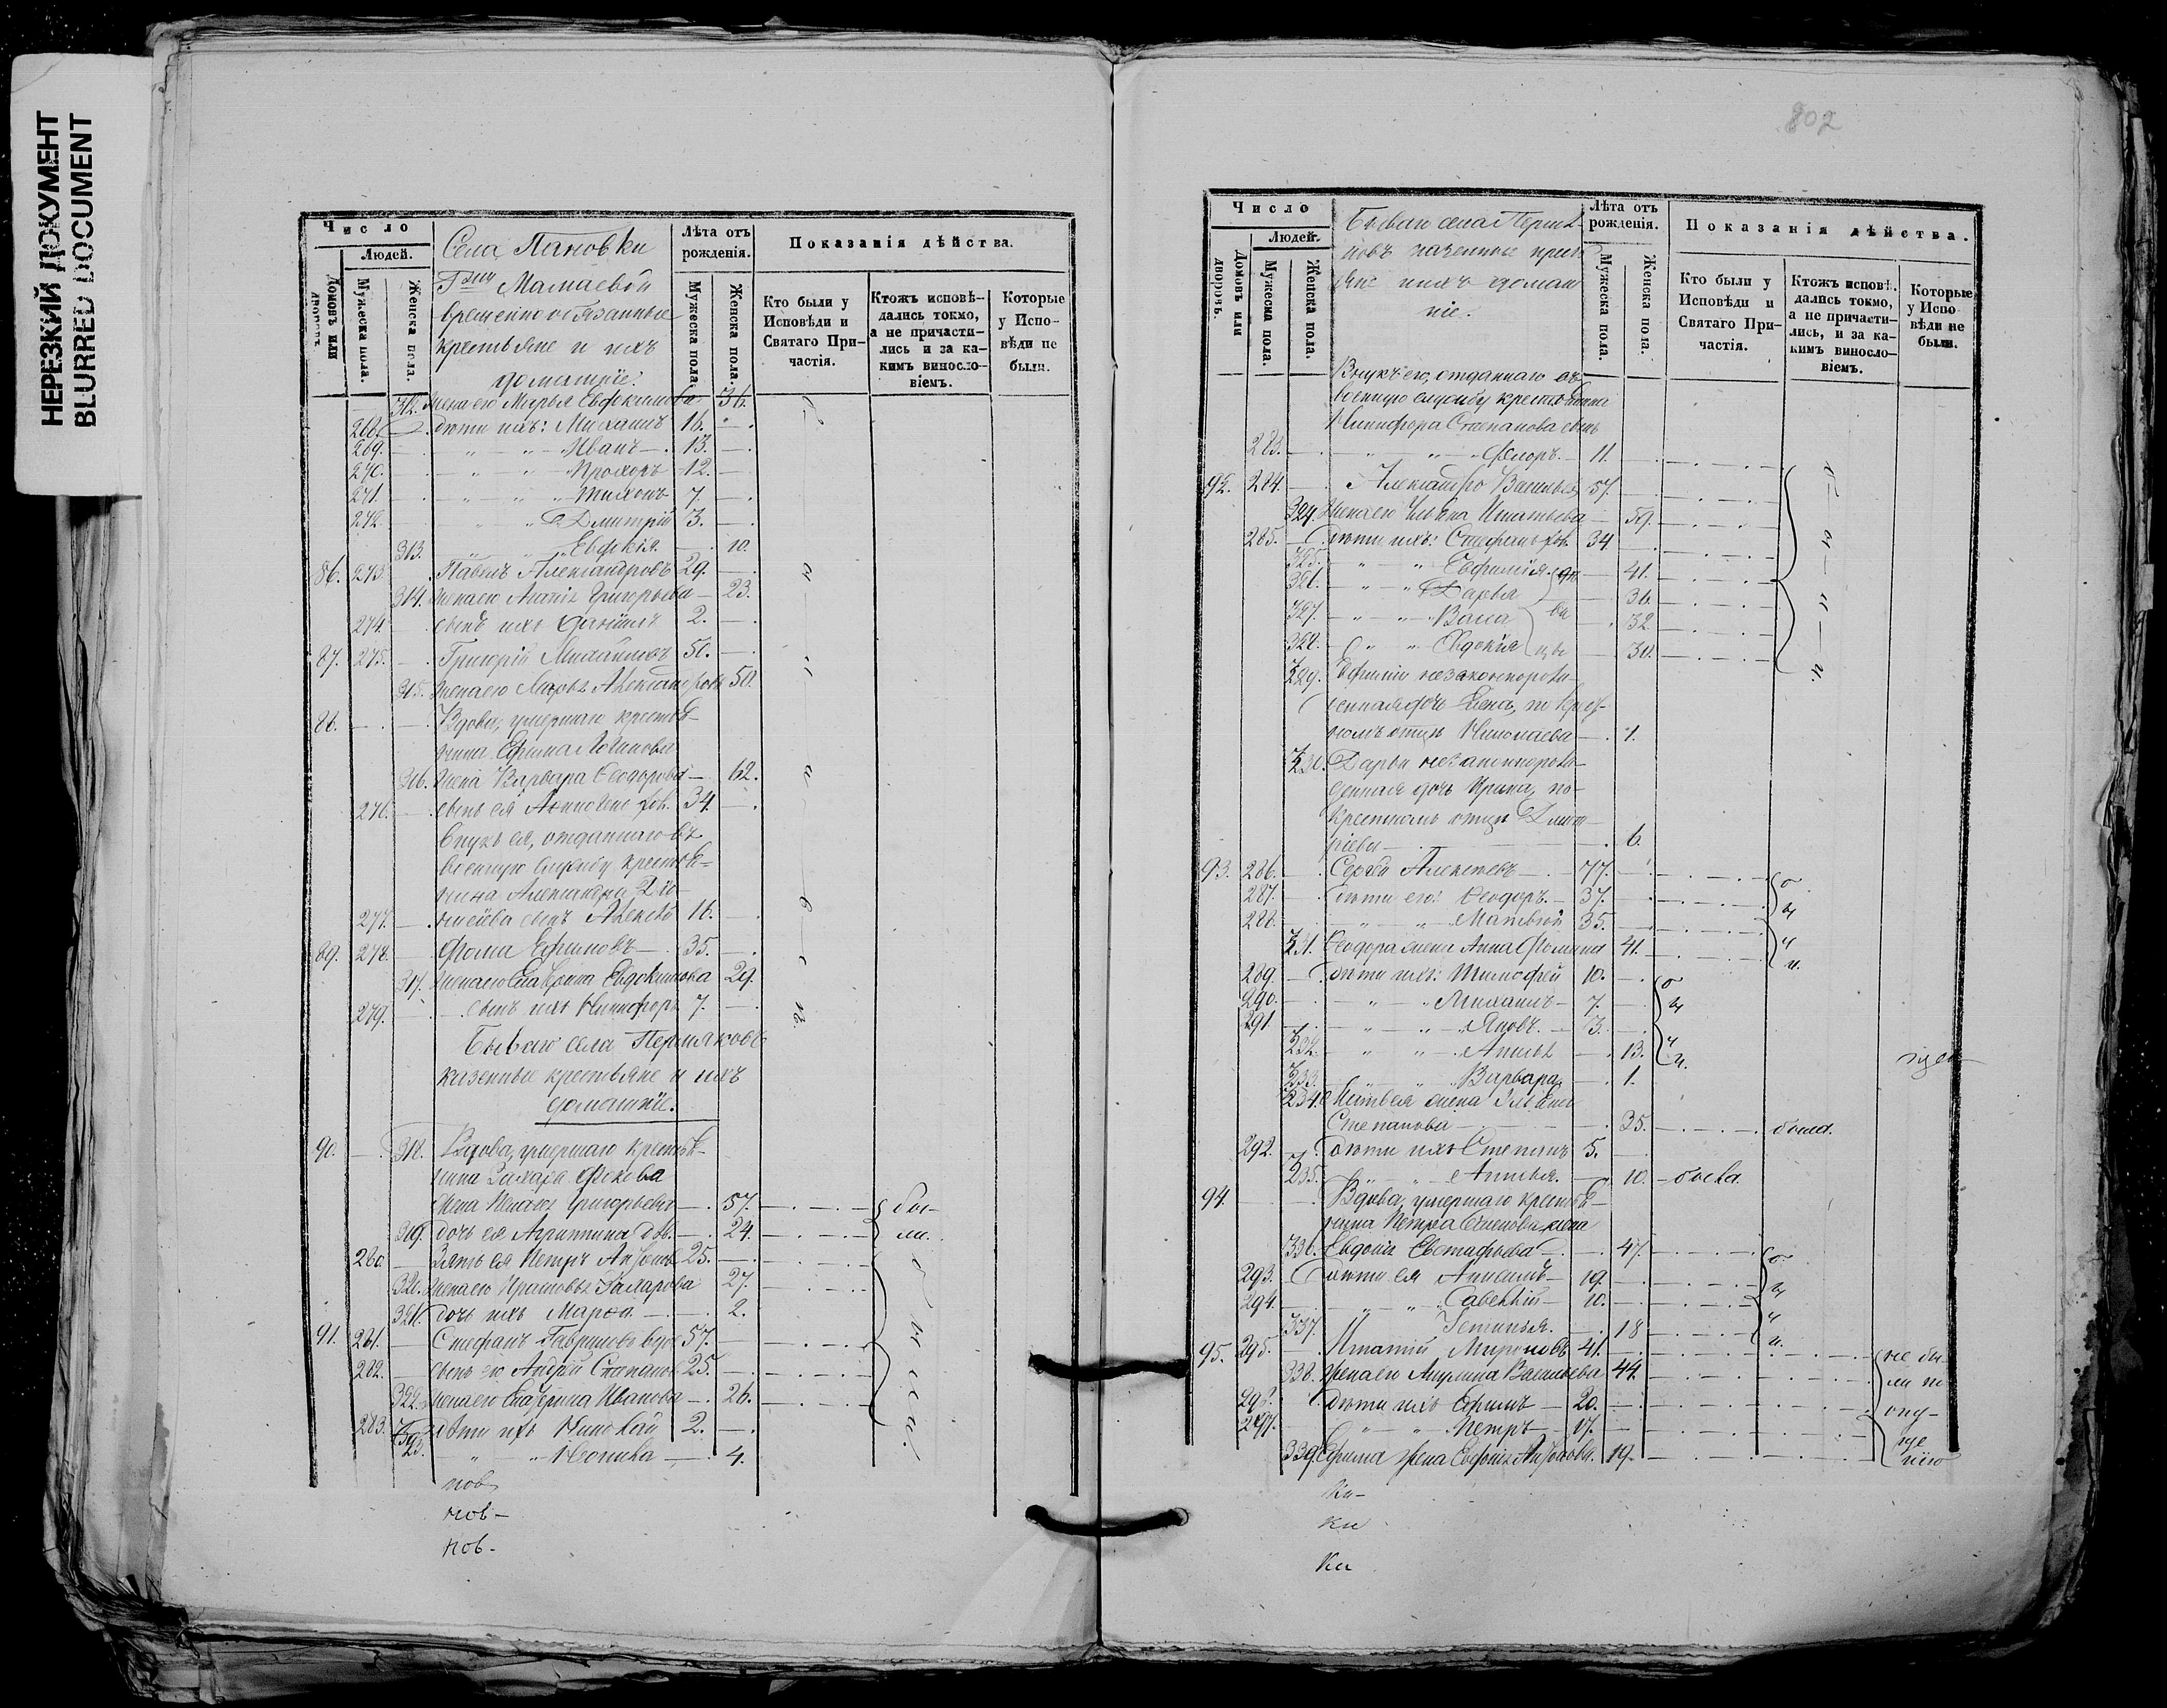 НЕРЕЗКИЙ ДОКУМЕНТ
BLURRED DOCUMENT
Число
Людей.
Домовъ или дворовъ.
Мужеска пола.
Женска пола.
Села Пановки
Г-жи Мамаевой
временно обязанные
крестьяне и ихъ
домашніе.
Лѣта отъ рожденія.
Мужеска пола.
Женска пола.
Показанія дѣйства.
Кто были у Исповѣди и Святаго Причастія.
Ктожъ исповѣдались токмо, а не причастились и за какимъ винословіемъ.
Которые у Исповѣди не были.
312. Жена его Марья Евдокимова 36.
268. дѣти ихъ: Михаилъ 16.
269. " " Иванъ 13.
270. " " Прохоръ 12.
271. " " Тихонъ 7.
272. " " Дмитрій 3.
313. " " 10.
86. 273. Павелъ Александровъ 29.
314. Жена его Григорьева 23.
274. сынъ ихъ Даніилъ 2.
87. 275. Григорій Михайловъ 50.
315. Жена его Александрова 50.
88. Вдова, умершаго крестья-
нина Ефима Логинова
316. жена Варвара Ѳеодорова 62.
276. сынъ ея 34.
Внукъ ея, отданнаго въ
военную службу крестья-
нина Александра
277. сынъ Алексѣй 16.
89. 278. Фома Ефимовъ 35.
317. Жена его Екатерина Евдокимова 29.
279. сынъ ихъ Никифоръ 7.
Бываго села Пермяковъ
казенные крестьяне и ихъ
домашніе.
90. 318. Вдова, умершаго крестья-
нина Захара
жена Григорьева 57. бы-
319. дочь ея Агриппина дѣв. 24. ли.
280. Зять ея Петръ 25.
320. Жена его Захарова 27.
321. дочь ихъ Марѳа 2.
91. 281. Стефанъ Гавриловъ вдов. 57.
282. сынъ его Андрей Степановъ 25.
322. Жена его Екатерина Иванова 26.
283. дѣти ихъ Николай 2.
323. " " 4.
нов-
нов-
нов-
802
Число
Людей.
Домовъ или дворовъ.
Мужеска пола.
Женска пола.
Бываго села Пермя-
ковъ казенные крест-
яне ихъ домаш-
ніе.
Лѣта отъ рожденія.
Мужеска пола.
Женска пола.
Показанія дѣйства.
Кто были у Исповѣди и Святаго Причастія.
Ктожъ исповѣдались токмо, а не причастились, и за какимъ винословіемъ.
Которые у Исповѣди не были.
Внукъ его, отданнаго въ
военную службу крестьянина
Никифора Степанова сынъ
283. " " Ѳедоръ 11.
92. 284. Александръ Васильевъ 57.
324. Жена его Ульяна Игнатьева 59.
285. Дѣти ихъ: Стефанъ хол. 34.
325. " " Евфимія 41.
326. " " Дарья 36.
327. " " Васса 32.
328. " " Евдокія 30.
329. незаконнорож-
денная дочь Елена, по крест-
номъ отцѣ Николаева 1.
330. Дарьи незаконнорож-
денная дочь Ирина, по
крестномъ отцѣ Дмит-
ріева 6.
93. 286. Сергѣй Алексѣевъ 77.
287. Дѣти его: Ѳеодоръ 37.
288. " " Матвѣй 35.
331. Ѳеодора жена Анна Фомина 41.
289. Дѣти ихъ: Тимофей 10.
290. " " Михаилъ 7.
291. " " Яковъ 3.
332. " " Анисья 13.
333. " " Варвара 1.
334. Матвея жена Ульяна
Степанова 35. была.
292. Дѣти ихъ Степанъ 5.
335. " " Анисья 10. была.
94. Вдова, умершаго крестья-
нина Петра Семенова жена
336. Евдокія Евстафьева 47.
293. Дѣти ея Анисимъ 19.
294. " " Савелій 10.
337. Устинья 18
95. 295. Игнатій Мироновъ 41. не бы-
338. Жена его Акулина Васильева 44. ли по
296. Дѣти ихъ Ефимъ 20. опу-
297. " " Петръ 17. ще
339. Ефима жена 19. нію
ки-
ки
ки